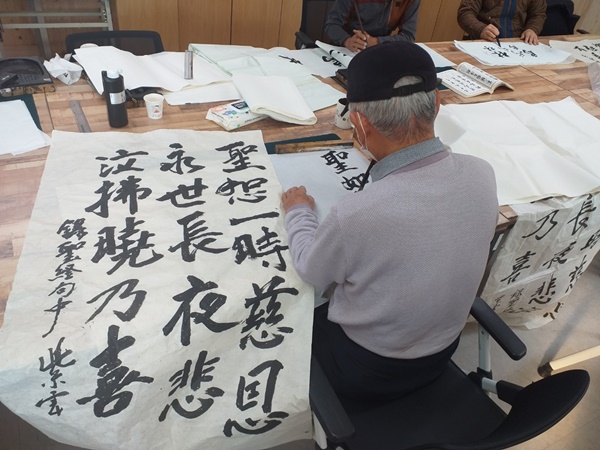 聖怒一時慈恩
永世長夜悲
泣拂曉乃喜
錄聖經句 紫雲
聖
長夜悲
乃喜